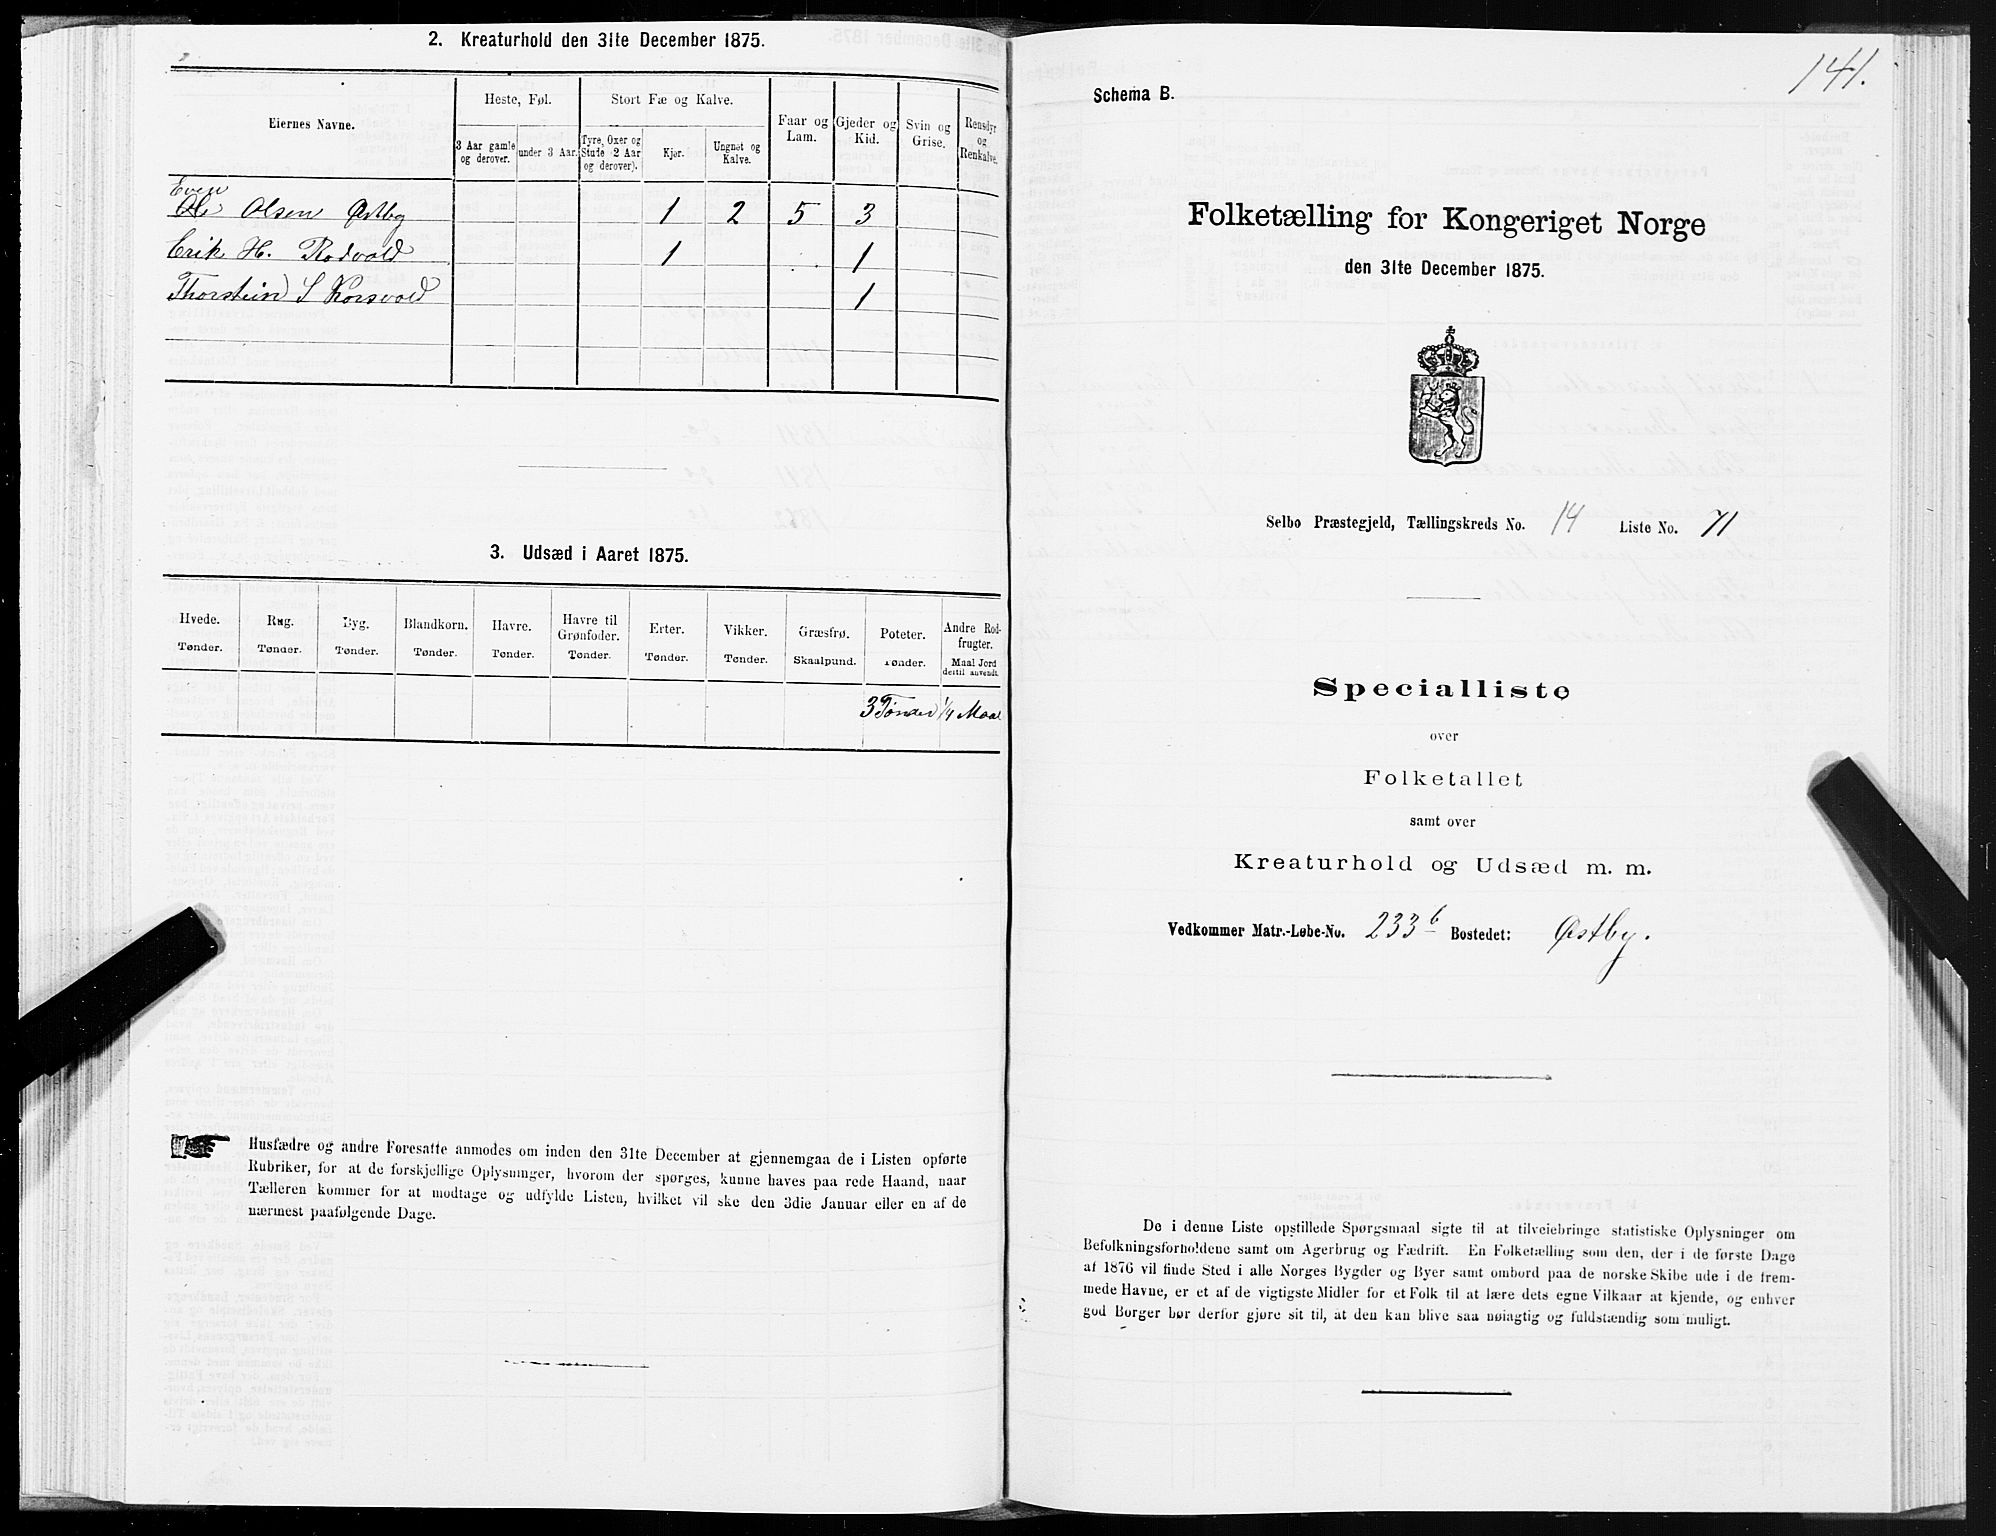 2. Kreaturhold den 31te December 1875.
Eiernes Navne.
Heste, Føl.
Stort Fæ og Kalve.
Faar og Lam.
Gjeder og Kid.
Svin og Grise.
Rensdyr og Renkalve.
3 Aar gamle og derover.
under 3 Aar.
Tyre, Oxer og Stude 2 Aar og derover).
Kjør.
Ungnøt og Kalve.
Even
Ole Olsen Østby 1 2 5 3
Erik H. Rodvold 1 1
Thorstein S Korsvold 1
3. Udsæd i Aaret 1875.
Hvede. Rug. Byg. Blandkorn. Havre. Havre til Grønfoder. Erter. Vikker. Græsfrø. Poteter. Andre Rodfrugter.
Tønder. Tønder. Tønder. Tønder. Tønder. Tønder. Tønder. Tønder. Skaalpund. Tønder. Maal Jord dertil anvendt.
3 Tønder 1/4 Maal
Husfædre og andre Foresatte anmodes om inden den 31te December at gjennemgaa de i Listen opførte
Rubriker, for at de forskjellige Oplysninger, hvorom der spørges, kunne haves paa rede Haand, naar
Tælleren kommer for at modtage og udfylde Listen, hvilket vil ske den 3die Januar eller en af de
nærmest paafølgende Dage.
141.
Schema B.
Folketælling for Kongeriget Norge
den 31te December 1875.
Selbo Præstegjeld, Tællingskreds No. 14 Liste No. 71
Specialliste
over
Folketallet
samt over
Kreaturhold og Udsæd m. m.
Vedkommer Matr.-Løbe-No. 233 b Bostedet: Østby.
De i denne Liste opstillede Spørgsmaal sigte til at tilveiebringe statistiske Oplysninger om
Befolkningsforholdene samt om Agerbrug og Fædrift. En Folketælling som den, der i de første Dage
af 1876 vil finde Sted i alle Norges Bygder og Byer samt ombord paa de norske Skibe ude i de frem-
mede Havne, er et af de vigtigste Midler for et Folk til at lære dets egne Vilkaar at kjende, og enhver
god Borger bør derfor gjøre sit til, at den kan blive saa nøiagtig og fuldstændig som muligt.